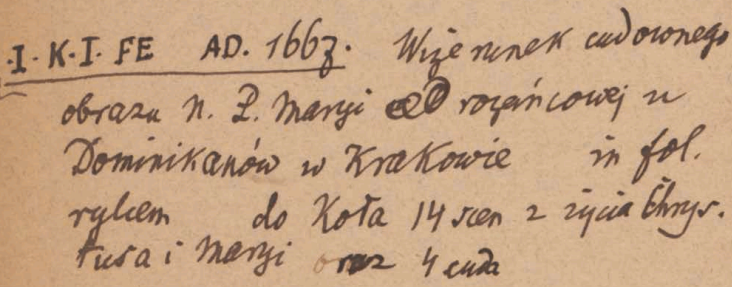 ·I·K·I·FE AD. 1667. Wizerunek cudownego
obrazu N. P. Maryi rozańcowej u
Dominikanów w Krakowie in fol.
rylcem do Koła 14 scen z życia Chrys-
tusa i Maryi oraz 4 cuda